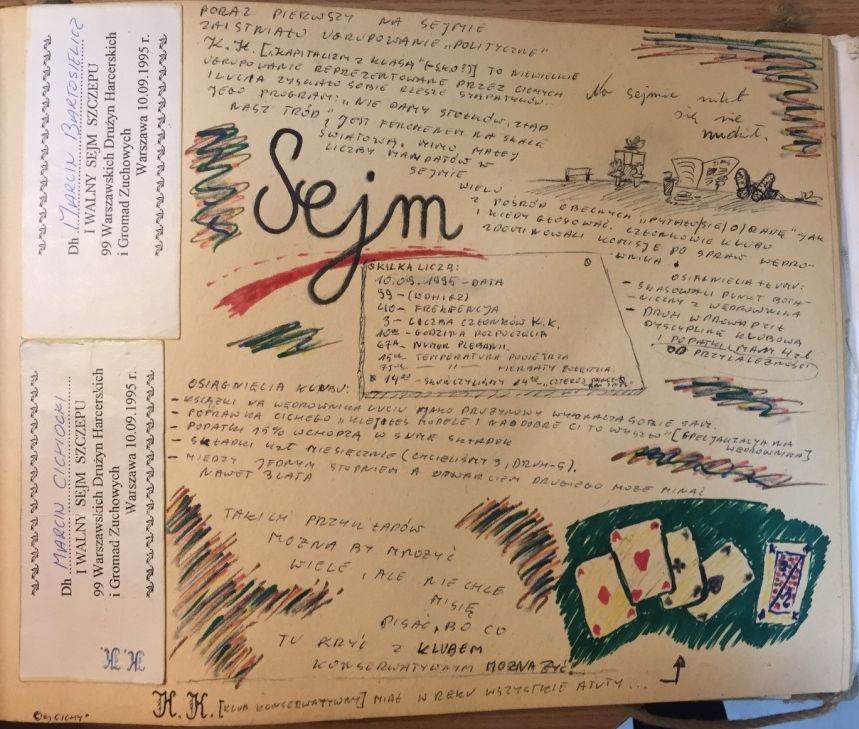 Dh MARCIN BARTOSIEWICZ
I WALNY SEJM SZCZEPU
99 Warszawskich Drużyn Harcerskich
i Gromad Zuchowych
Warszawa 10.09.1995 r.
Dh MARCIN CICHOCKI
I WALNY SEJM SZCZEPU
99 Warszawskich Drużyn Harcerskich
i Gromad Zuchowych
Warszawa 10.09.1995 r.
K.K.
PORAZ PIERWSZY NA SEJMIE
ZAISTNIAŁO UGRUPOWANIE „POLITYCZNE"
K.K. [„KAPITALIZM Z KLASĄ" (-SKO?)] TO NIEWIELKIE
UGRUPOWANIE REPREZENTOWANE PRZEZ CICHYCH
I LUCIA ZYSKAŁO SOBIE RZESZE SYMPATYKÓW.
JEGO PROGRAM: „NIE DAMY STOŁKÓW, RZĄD
NASZ TRUD"
I JEST FENOMENEM NA SKALĘ
ŚWIATOWĄ, MIMO MAŁEJ
LICZBY MANDATÓW W
SEJMIE
Na sejmie nikt
się nie
nudził.
Sejm
WIELU
Z POŚRÓD OBECNYCH „PYTAŁO/SIĘ/O/RADĘ" JAK
I KIEDY GŁOSOWAĆ. CZŁONKOWIE KLUBU
ZDOMINOWALI KOMISJĘ DO SPRAW WĘDRO-
WNIKA.
KILKA LICZB:
10.09.1995 - DATA
99 - (ODNIEŚ)
40 - FREKFENCJA
3 - LICZBA CZŁONKÓW K.K.
10 - GODZINA ROZPOCZĘCIA
67A - NUMER PLEBANII
15 TEMPERATURA POWIETRZA
HERBATY
14 - SKOŃCZYLIŚMY
OSIĄGNIĘCIA
- SKASOWALI PUNKT BOTA-
NICZNY Z WĘDROWNIKA
- DRUH WPROWADZIŁ
DYSCYPLINĘ KLUBOWĄ
I PODATEK MAMY 4 zł
OD PRZYNALEŻNOŚCI
OSIĄGNIĘCIA KLUBU:
- KSIĄŻKI NA WĘDROWNIKA LUCIU JAKO DRUŻYNOWY WYZNACZA SOBIE SAM.
- POPRAWKA CICHEGO „KLEJĄŁEŚ MODELE I NADOBRE CI TO WYSZŁO" [SPECJALIZACJA NA
WĘDROWNIKA]
- PODATKI 45% WCHODZĄ W SUMĘ SKŁADEK
- SKŁADKI 4zł MIESIĘCZNIE (CHCIELIŚMY 3, DRUH-5).
- MIĘDZY JEDNYM STOPNIEM A OTWARCIEM DRUGIEGO MOŻE MINĄĆ
NAWET 3 LATA
TAKICH PRZYKŁADÓW
MOŻNA BY MNOŻYĆ
WIELE, ALE NIE CHCE
MI SIĘ
PISAĆ, BO CO
TU KRYĆ Z KLUBEM
KONSERWATYWNYM MOŻNA ŻYĆ.
K.K. [KLUB KONSERWATYWNY] MIAŁ W RĘKU WSZYSTKIE ATUTY...
© by CICHY